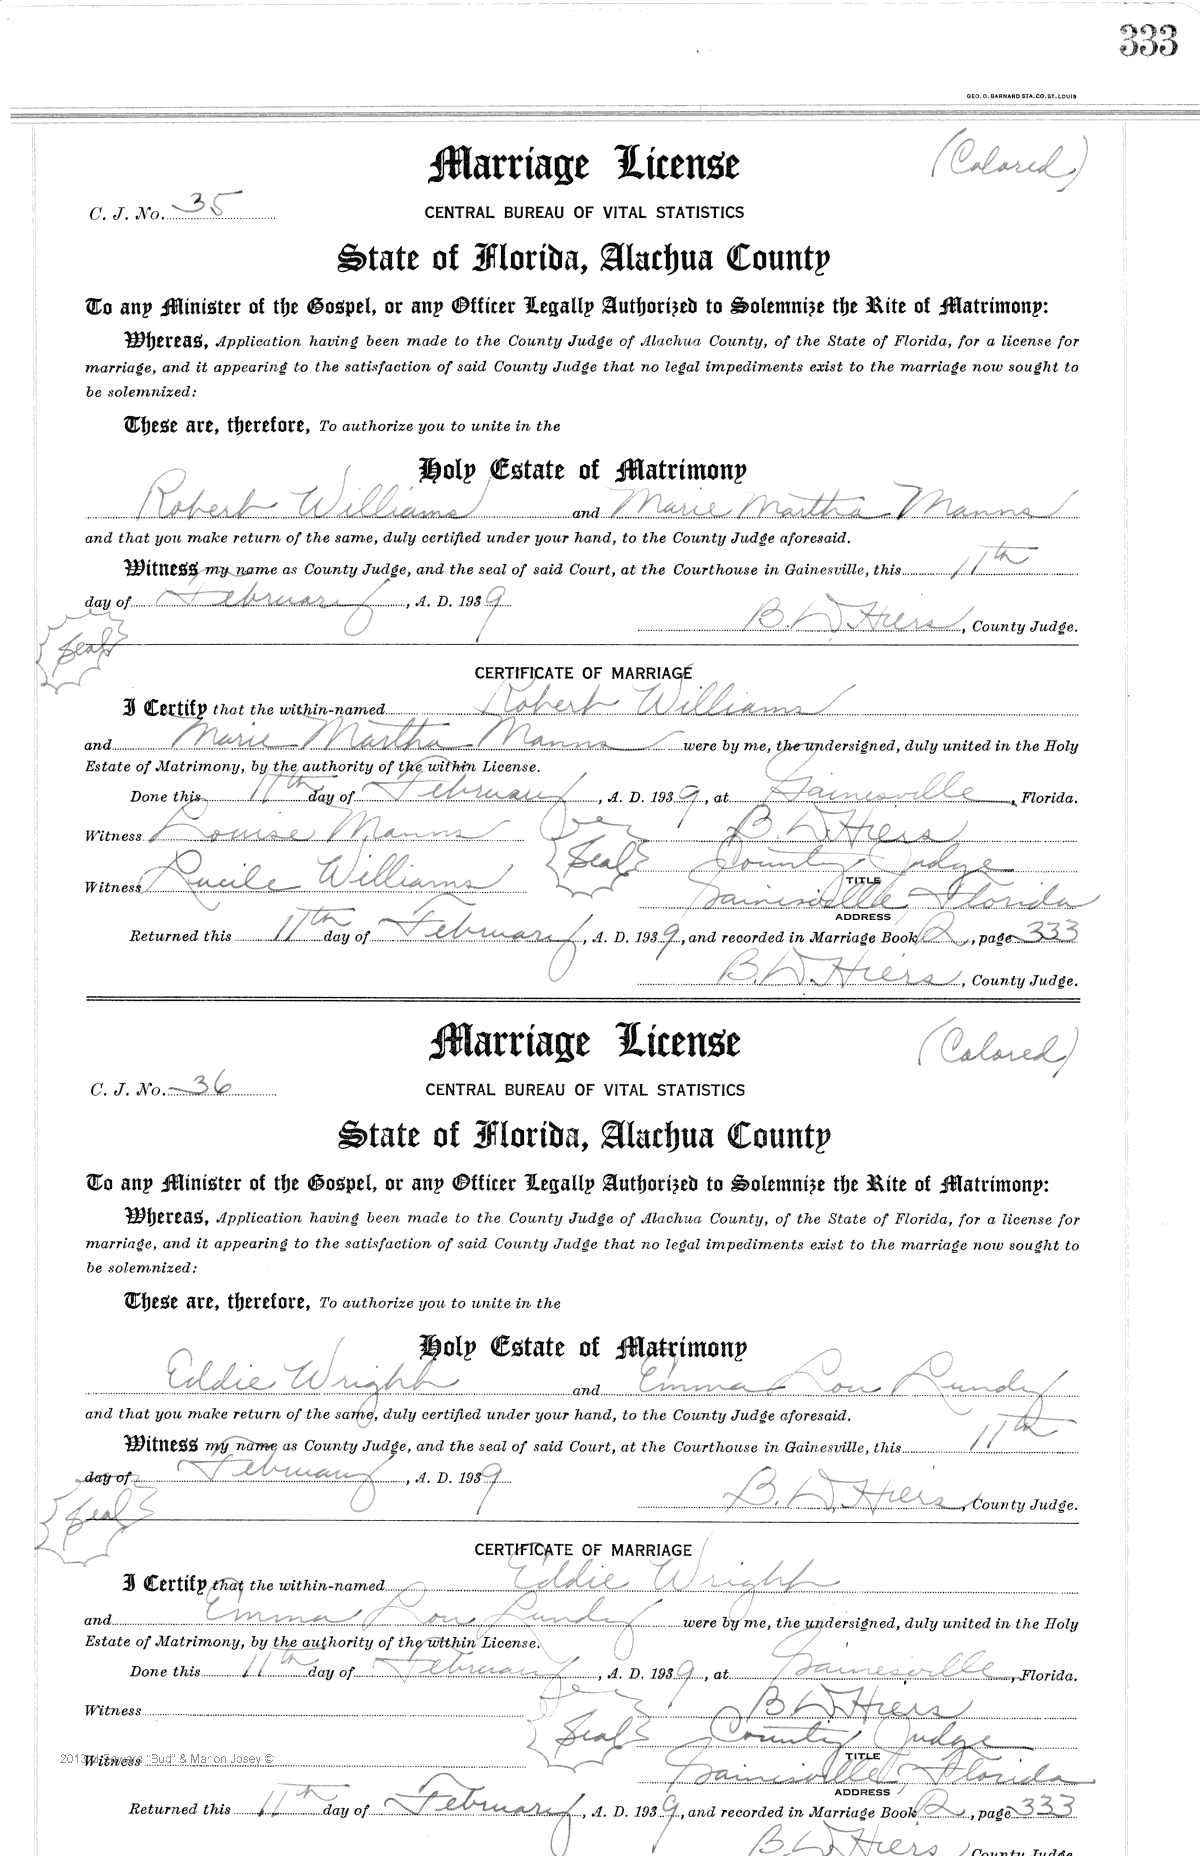 333
GEO. D. BARNARD STA. CO. ST. LOUIS
Marriage License
(Colored)
C. J. No. 35
CENTRAL BUREAU OF VITAL STATISTICS
State of Florida, Alachua County
To any Minister of the Gospel, or any Officer Legally Authorized to Solemnize the Rite of Matrimony:
Whereas, Application having been made to the County Judge of Alachua County, of the State of Florida, for a license for
marriage, and it appearing to the satisfaction of said County Judge that no legal impediments exist to the marriage now sought to
be solemnized:
These are, therefore, To authorize you to unite in the
Holy Estate of Matrimony
Robert Williams and Marie Martha Manns
and that you make return of the same, duly certified under your hand, to the County Judge aforesaid.
Witness my name as County Judge, and the seal of said Court, at the Courthouse in Gainesville, this 11th
day of February, A. D. 1939
B. D. Hiers, County Judge.
Seal
CERTIFICATE OF MARRIAGE
I Certify that the within-named Robert Williams
and Marie Martha Manns were by me, the undersigned, duly united in the Holy
Estate of Matrimony, by the authority of the within License.
Done this 11th day of February, A. D. 1939, at Gainesville, Florida.
Witness Louise Manns Seal B. D. Hiers
County Judge
TITLE
Witness Lucile Williams Gainesville Florida
ADDRESS
Returned this 11th day of February, A. D. 1939, and recorded in Marriage Book R, page 333
B. D. Hiers, County Judge.
Marriage License
(Colored)
C. J. No. 36
CENTRAL BUREAU OF VITAL STATISTICS
State of Florida, Alachua County
To any Minister of the Gospel, or any Officer Legally Authorized to Solemnize the Rite of Matrimony:
Whereas, Application having been made to the County Judge of Alachua County, of the State of Florida, for a license for
marriage, and it appearing to the satisfaction of said County Judge that no legal impediments exist to the marriage now sought to
be solemnized:
These are, therefore, To authorize you to unite in the
Holy Estate of Matrimony
Eddie Wright and Emma Lou Lundy
and that you make return of the same, duly certified under your hand, to the County Judge aforesaid.
Witness my name as County Judge, and the seal of said Court, at the Courthouse in Gainesville, this 11th
day of February, A. D. 1939
B. D. Hiers, County Judge.
Seal
CERTIFICATE OF MARRIAGE
I Certify that the within-named Eddie Wright
and Emma Lou Lundy were by me, the undersigned, duly united in the Holy
Estate of Matrimony, by the authority of the within License.
Done this 11th day of February, A. D. 1939, at Gainesville, Florida.
Witness Seal B. D. Hiers
County Judge
TITLE
2013 "Bud" & Marion Josey ©
Witness Gainesville Florida
ADDRESS
Returned this 11th day of February, A. D. 1939, and recorded in Marriage Book R, page 333
B. D. Hiers, County Judge.